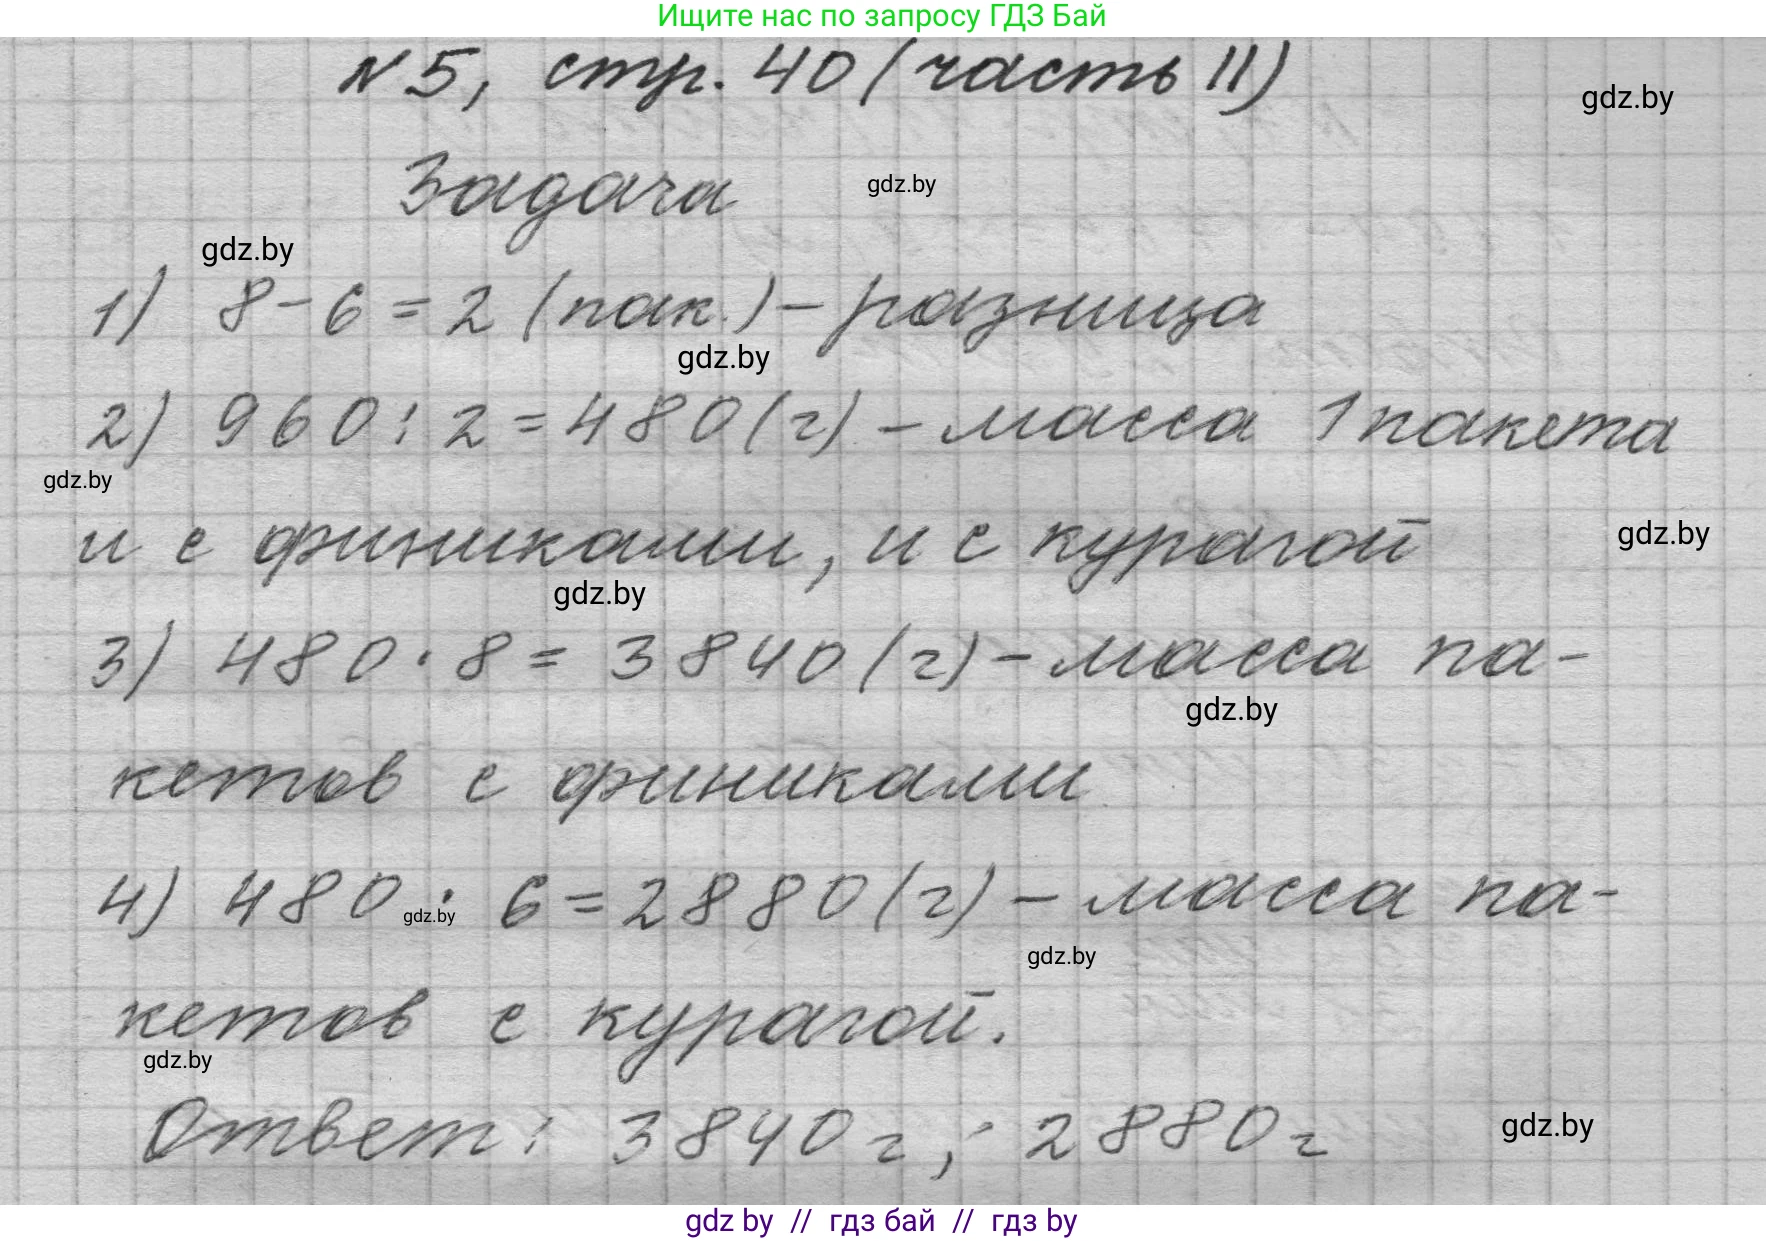 Ищите нас по запросу ГДЗ Бай
№5, стр. 40 (часть II)
gdz.by
Задача
gdz.by
gdz.by
1) 8 - 6 = 2 (пак.) - разница
gdz.by
2) 960 : 2 = 480 (г) - масса 1 пакета
gdz.by
и с финиками, и с курагой
gdz.by
gdz.by
3) 480 · 8 = 3840 (г) - масса па-
gdz.by
кетов с финиками
4) 480 · 6 = 2880 (г) - масса па-
gdz.by
gdz.by
кетов с курагой.
gdz.by
Ответ: 3840 г; 2880 г
gdz.by
gdz by // гдз бай // гдз by